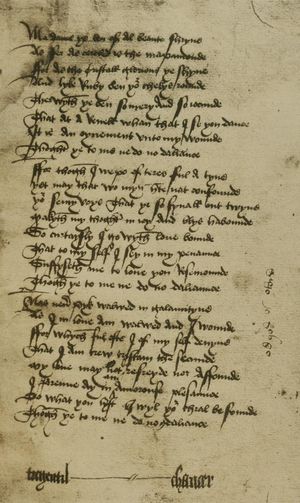 Ma dame ye ben of al beaute shryne
As fer as cercled is the mapamounde
For as the Cristall glorious ye shyne
And lyke Ruby ben yor chekys rounde
Therwyth ye ben so mery and so iocunde
That at a Reuell whan that I se you dance
It is an oynement vnto my wounde
Thoght ye to me ne do no daliance
For thogh I wepe of teres ful a tyne
Yet may that wo myn herte nat confounde
Yor semy voys that ye so small out twyne
Makyth my thoght in ioy and blys habounde
So curtaysly I go wyth loue bounde
That to my self I sey in my penaunce
Suffyseth me to loue you Rosemounde
Thogh ye to me ne do no daliaunce
Nas neuer Pyk walwed in galauntyne
As I in loue am walwed and I wounde
For whych ful ofte I of my self deuyne
That I am trew Tristam the secunde
My loue may not refreyde nor affounde
I brenne ay in an amorouse plesaunce
Do what you lyst I wyl yor thral be founde
Thogh ye to me ne do no daliance
tregentil chaucer